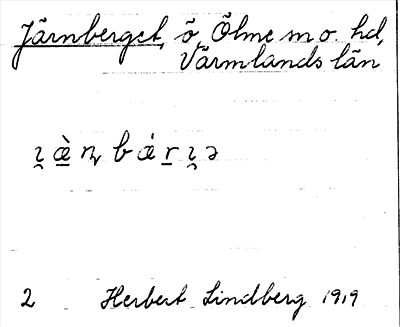 Järnberget, ö, Ölme sn o. hd,
Värmlands län
ı̯ æ̱̀ ɳ b ά r̲ ı̯ ə
2 Herbert Lindberg 1919